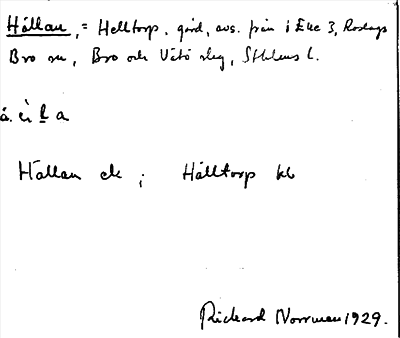 Hållan, = Helltorp, gård, avs. från i Eke 3, Roslags
Bro sn, Bro och Vätö slg, Sthlms l.
Hållan ek ; Hålltorp kb
Richard Norrman 1929.